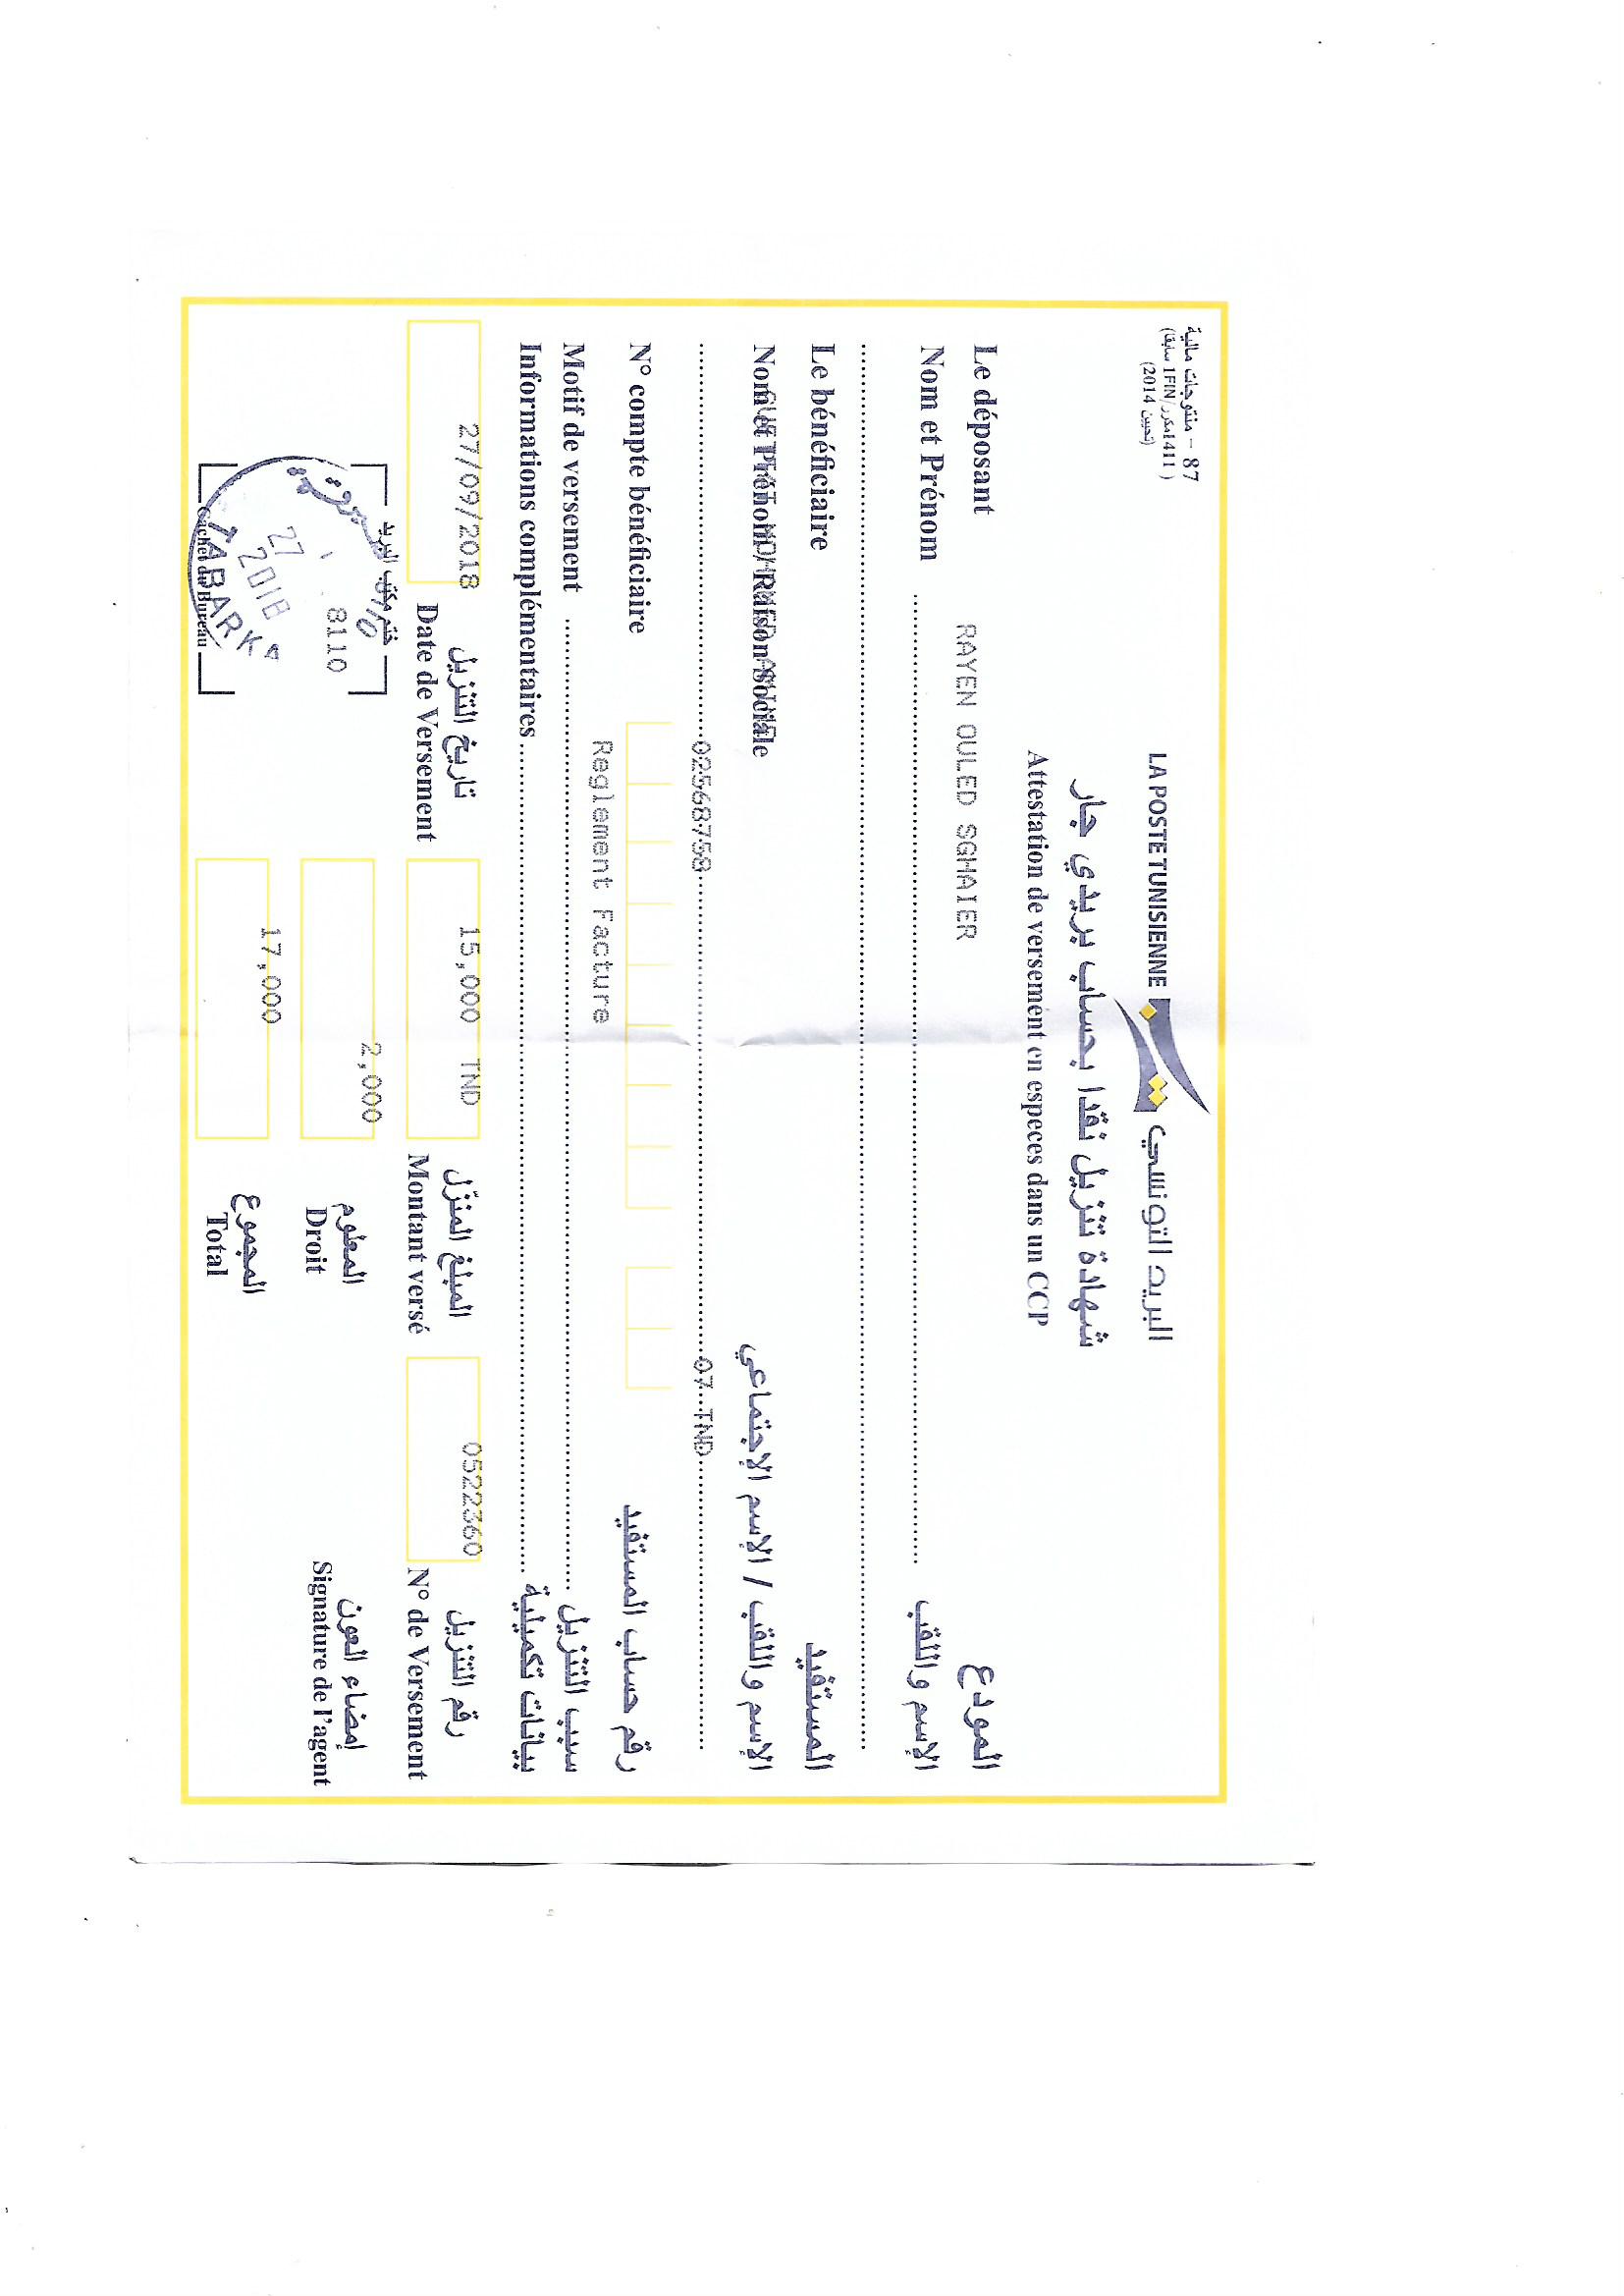 87 – منتوجات مالية
( 1411مكرر/1FIN سابقا)
(تحيين 2014)
LA POSTE TUNISIENNE البريد التونسي
شهادة تنزيل نقدا بحساب بريدي جار
Attestation de versement en especes dans un CCP
Le déposant المودع
RAYEN OULED SGHAIER
Nom et Prénom الإسم واللقب
Le bénéficiaire المستفيد
Nom et Prénom / Raison Sociale الإسم واللقب / الإسم الإجتماعي
02568758 07 TND
N° compte bénéficiaire رقم حساب المستفيد
Reglement Facture
Motif de versement سبب التنزيل
Informations complémentaires بيانات تكميلية
27/09/2018 تاريخ التنزيل 15,000 TND المبلغ المنزّل 0522360 رقم التنزيل
Date de Versement Montant versé N° de Versement
ختم مكتب البريد
8110
2,000 المعلوم
Droit
إمضاء العون
Signature de l'agent
27
2018
TABARKA
Cachet du Bureau
17,000 المجموع
Total